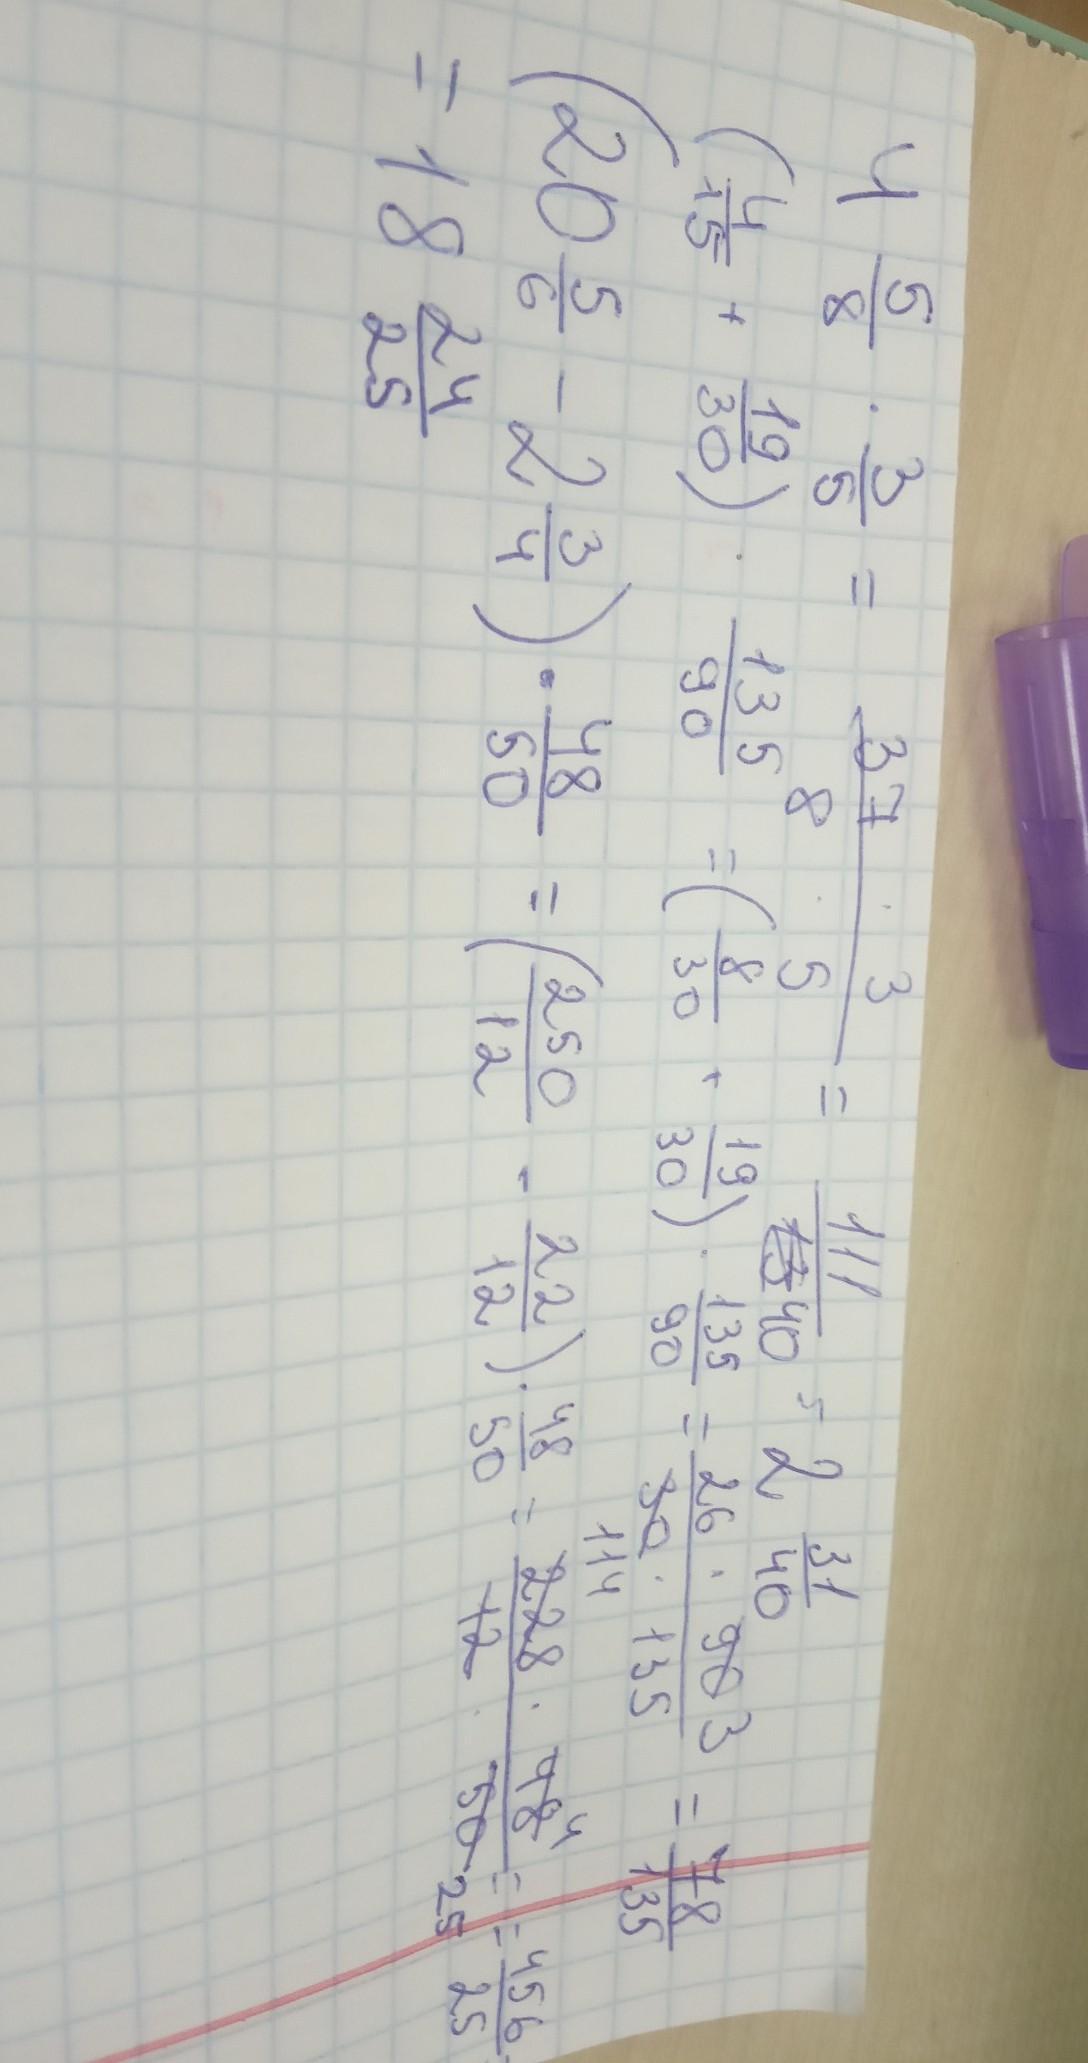 4 5/8 · 3/5 = 37 · 3 / 8 · 5 = 111/40 = 2 31/40
(4/15 + 19/30) · 135/90 = (8/30 + 19/30) · 135/90 = 26 · 90 3 / 30 · 135 = 78/135
(20 5/6 - 2 3/4) · 48/50 = (250/12 - 22/12) · 48/50 = 114 228 · 48 4 / 12 · 50 25 = = 456/25
= 18 24/25